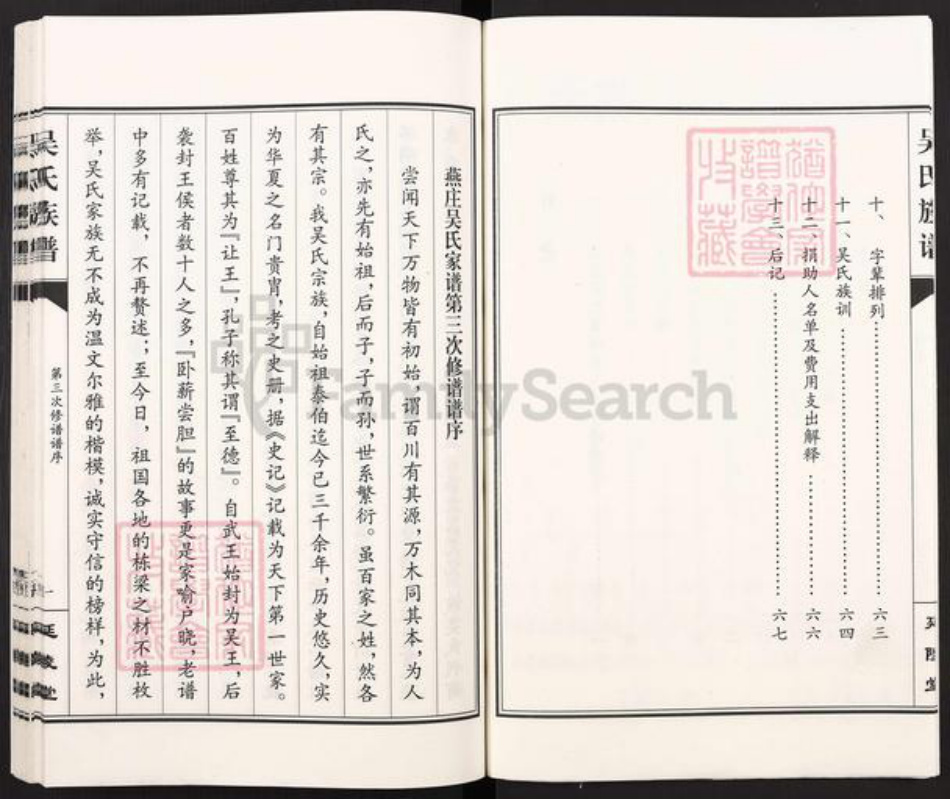 吴氏族谱
十、字辈排列……六三
十一、吴氏族训……六四
十二、捐助人名单及费用支出解释……六六
十三、后记……六七
燕庄吴氏家谱第三次修谱谱序
尝闻天下万物皆有初始,谓百川有其源,万木同其本,为人
氏之,亦先有始祖,后而子,子而孙,世系繁衍。虽百家之姓,然各
有其宗。我吴氏宗族,自始祖泰伯迄今已三千余年,历史悠久,实
为华夏之名门贵胄,考之史册,据《史记》记载为天下第一世家。
百姓尊其为『让王』,孔子称其谓『至德』。自武王始封为吴王,后
袭封王侯者数十人之多,『卧薪尝胆』的故事更是家喻户晓,老谱
中多有记载,不再赘述;至今日,祖国各地的栋梁之材不胜枚
举,吴氏家族无不成为温文尔雅的楷模,诚实守信的榜样,为此,
吴氏族谱
第三次修谱谱序
一
FamilySearch